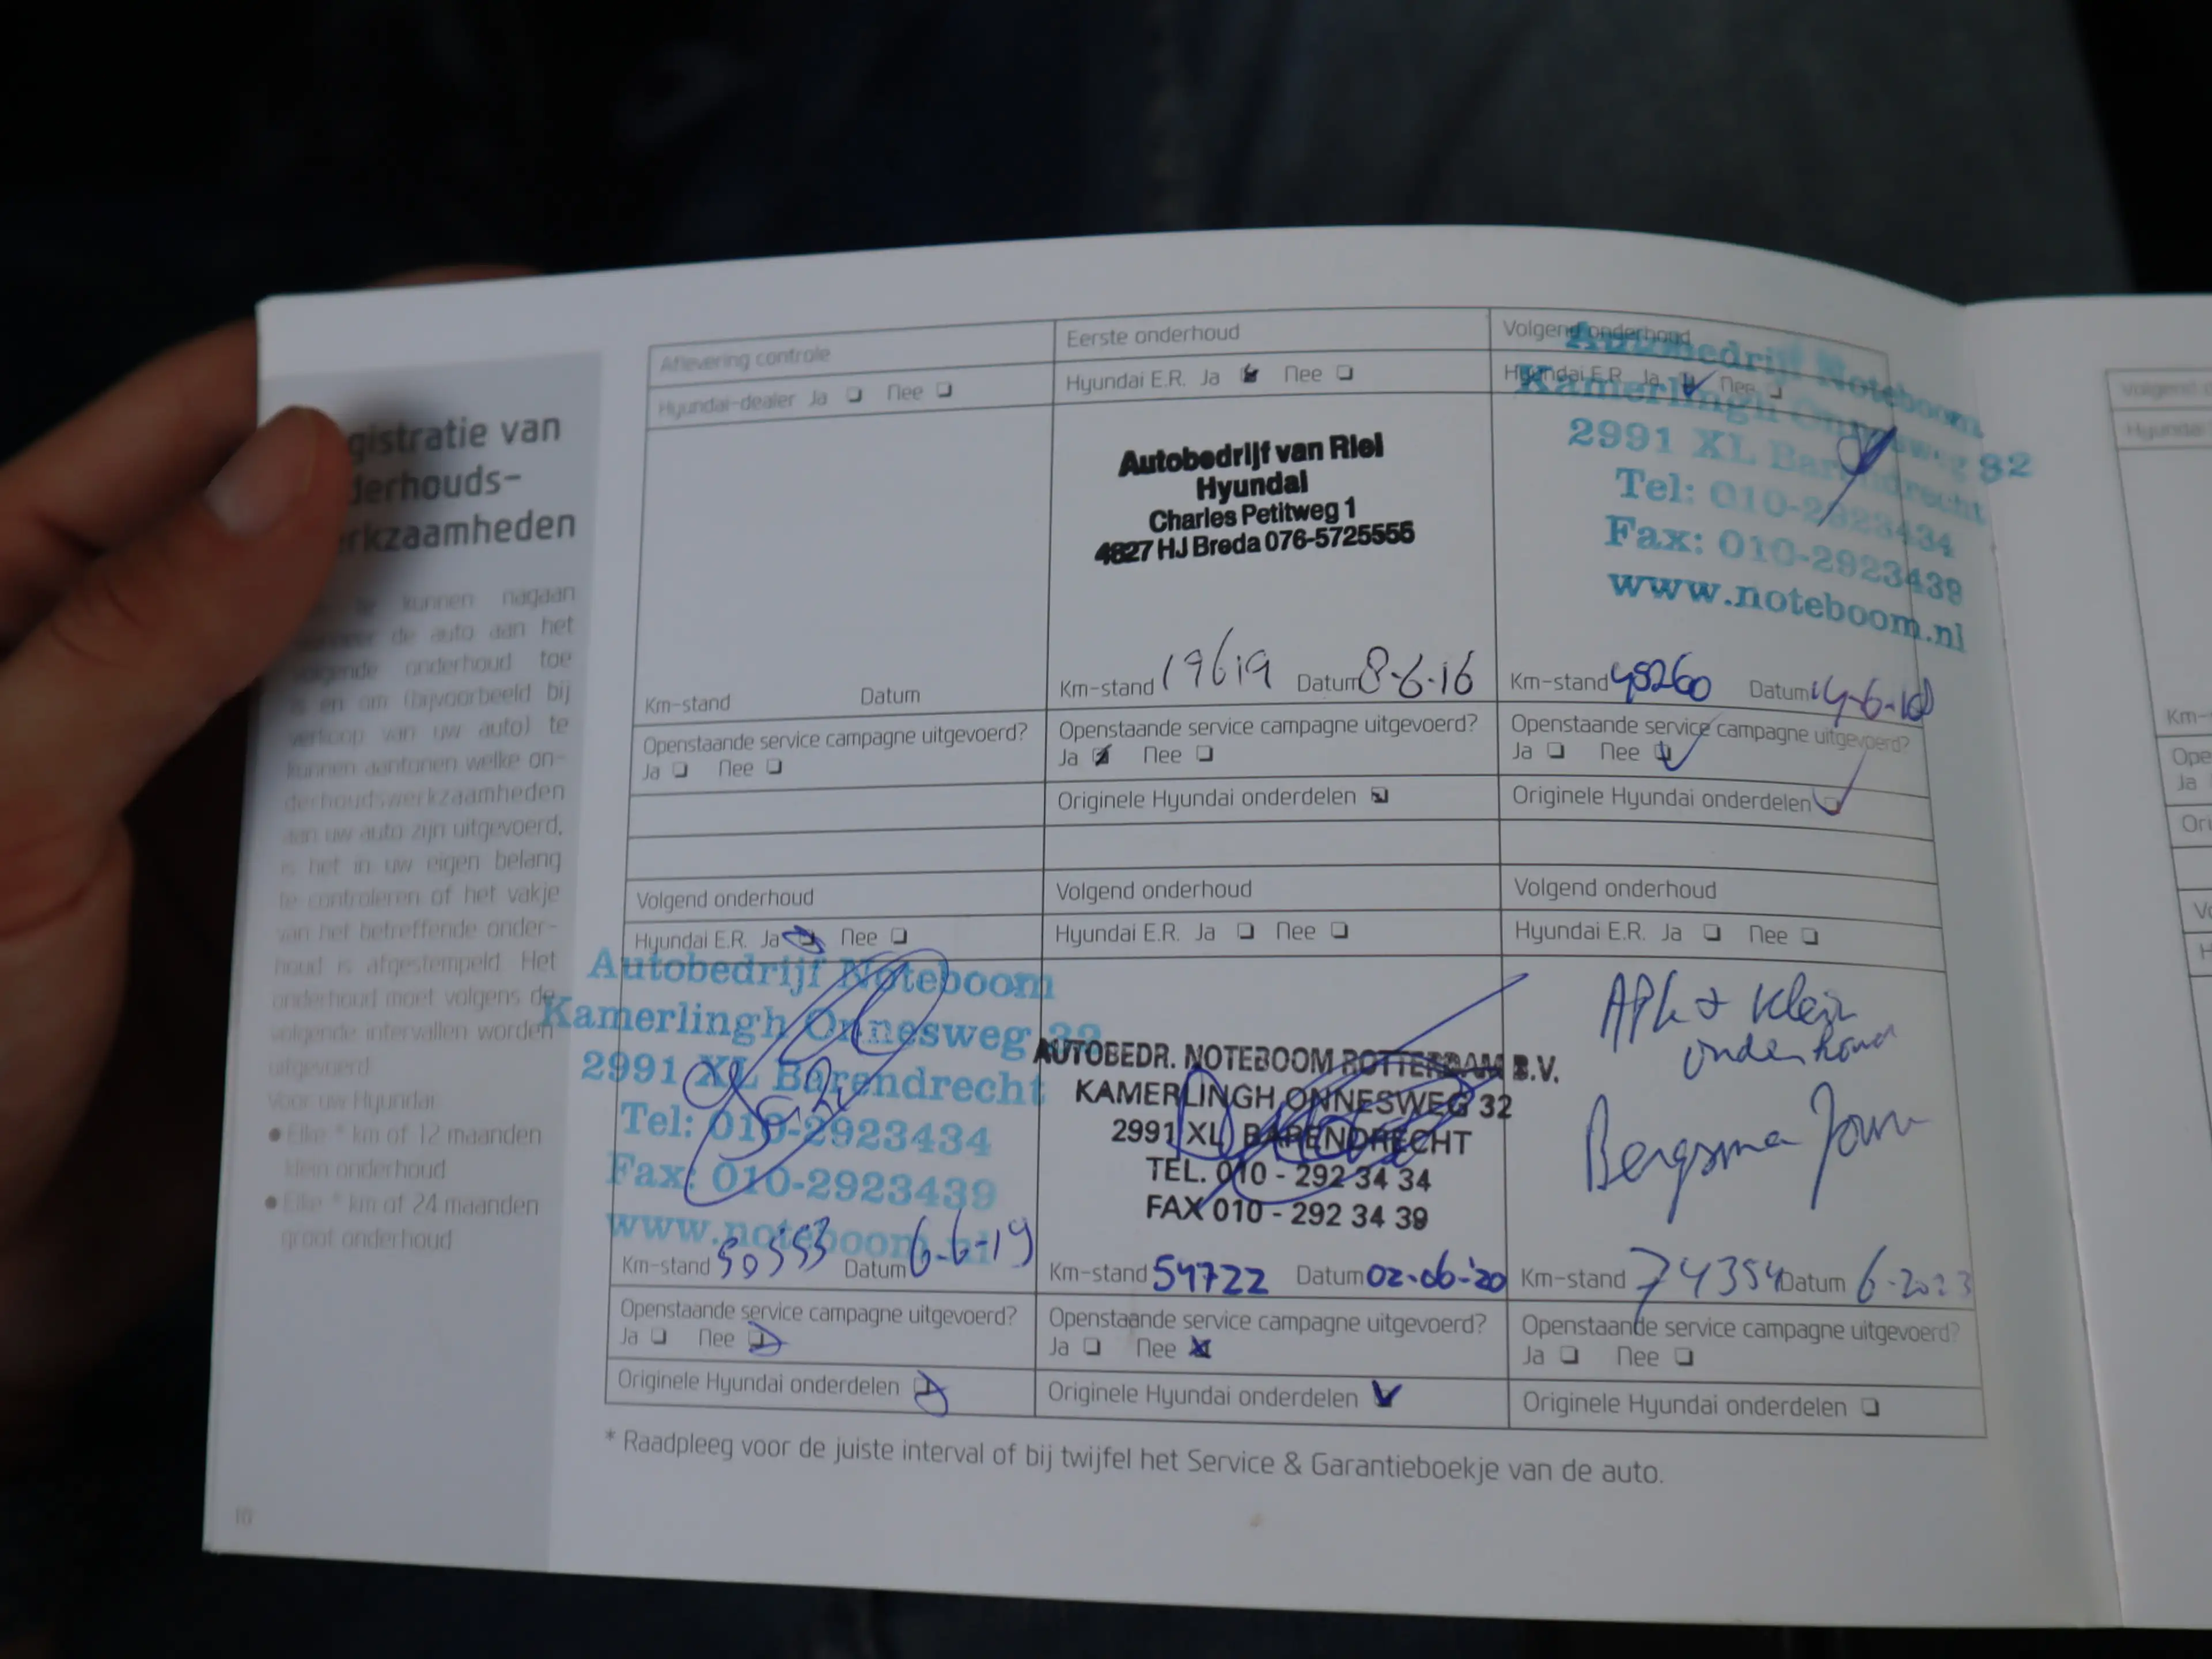 gistratie van
derhouds-
rkzaamheden
kunnen nagaan
de auto aan het
volgende onderhoud toe
is en om (bijvoorbeeld bij
verkoop van uw auto) te
kunnen aantonen welke on-
derhoudswerkzaamheden
aan uw auto zijn uitgevoerd,
is het in uw eigen belang
te controleren of het vakje
van het betreffende onder-
houd is afgestempeld. Het
onderhoud moet volgens de
volgende intervallen worden
uitgevoerd:
Voor uw Hyundai:
● Elke * km of 12 maanden
klein onderhoud
● Elke * km of 24 maanden
groot onderhoud
10
Aflevering controle
Hyundai-dealer Ja ❏ Nee ❏
Km-stand Datum
Openstaande service campagne uitgevoerd?
Ja ❏ Nee ❏
Eerste onderhoud
Hyundai E.R. Ja Nee ❏
Autobedrijf van Riel
Hyundai
Charles Petitweg 1
4827 HJ Breda 076-5725555
Km-stand 19619 Datum 8-6-16
Openstaande service campagne uitgevoerd?
Ja Nee ❏
Originele Hyundai onderdelen
Volgend onderhoud
Hyundai E.R. Ja Nee ❏
Autobedrijf Noteboom
Kamerlingh Onnesweg 32
2991 XL Barendrecht
Tel: 010-2923434
Fax: 010-2923439
www.noteboom.nl
Km-stand 45260 Datum 14-6-18
Openstaande service campagne uitgevoerd?
Ja ❏ Nee
Originele Hyundai onderdelen
Volgend onderhoud
Hyundai E.R. Ja Nee ❏
Autobedrijf Noteboom
Kamerlingh Onnesweg 32
2991 XL Barendrecht
Tel: 010-2923434
Fax: 010-2923439
www.noteboom.nl
Km-stand Datum 6-6-19
Openstaande service campagne uitgevoerd?
Ja ❏ Nee
Originele Hyundai onderdelen
Volgend onderhoud
Hyundai E.R. Ja ❏ Nee ❏
AUTOBEDR. NOTEBOOM ROTTERDAM B.V.
KAMERLINGH ONNESWEG 32
2991 XL BARENDRECHT
TEL. 010 - 292 34 34
FAX 010 - 292 34 39
Km-stand 54722 Datum 02-06-'20
Openstaande service campagne uitgevoerd?
Ja ❏ Nee
Originele Hyundai onderdelen
Volgend onderhoud
Hyundai E.R. Ja ❏ Nee ❏
APK + Klein
onderhoud
Bergsma
Km-stand 74354 Datum 6-2023
Openstaande service campagne uitgevoerd?
Ja ❏ Nee ❏
Originele Hyundai onderdelen ❏
* Raadpleeg voor de juiste interval of bij twijfel het Service & Garantieboekje van de auto.